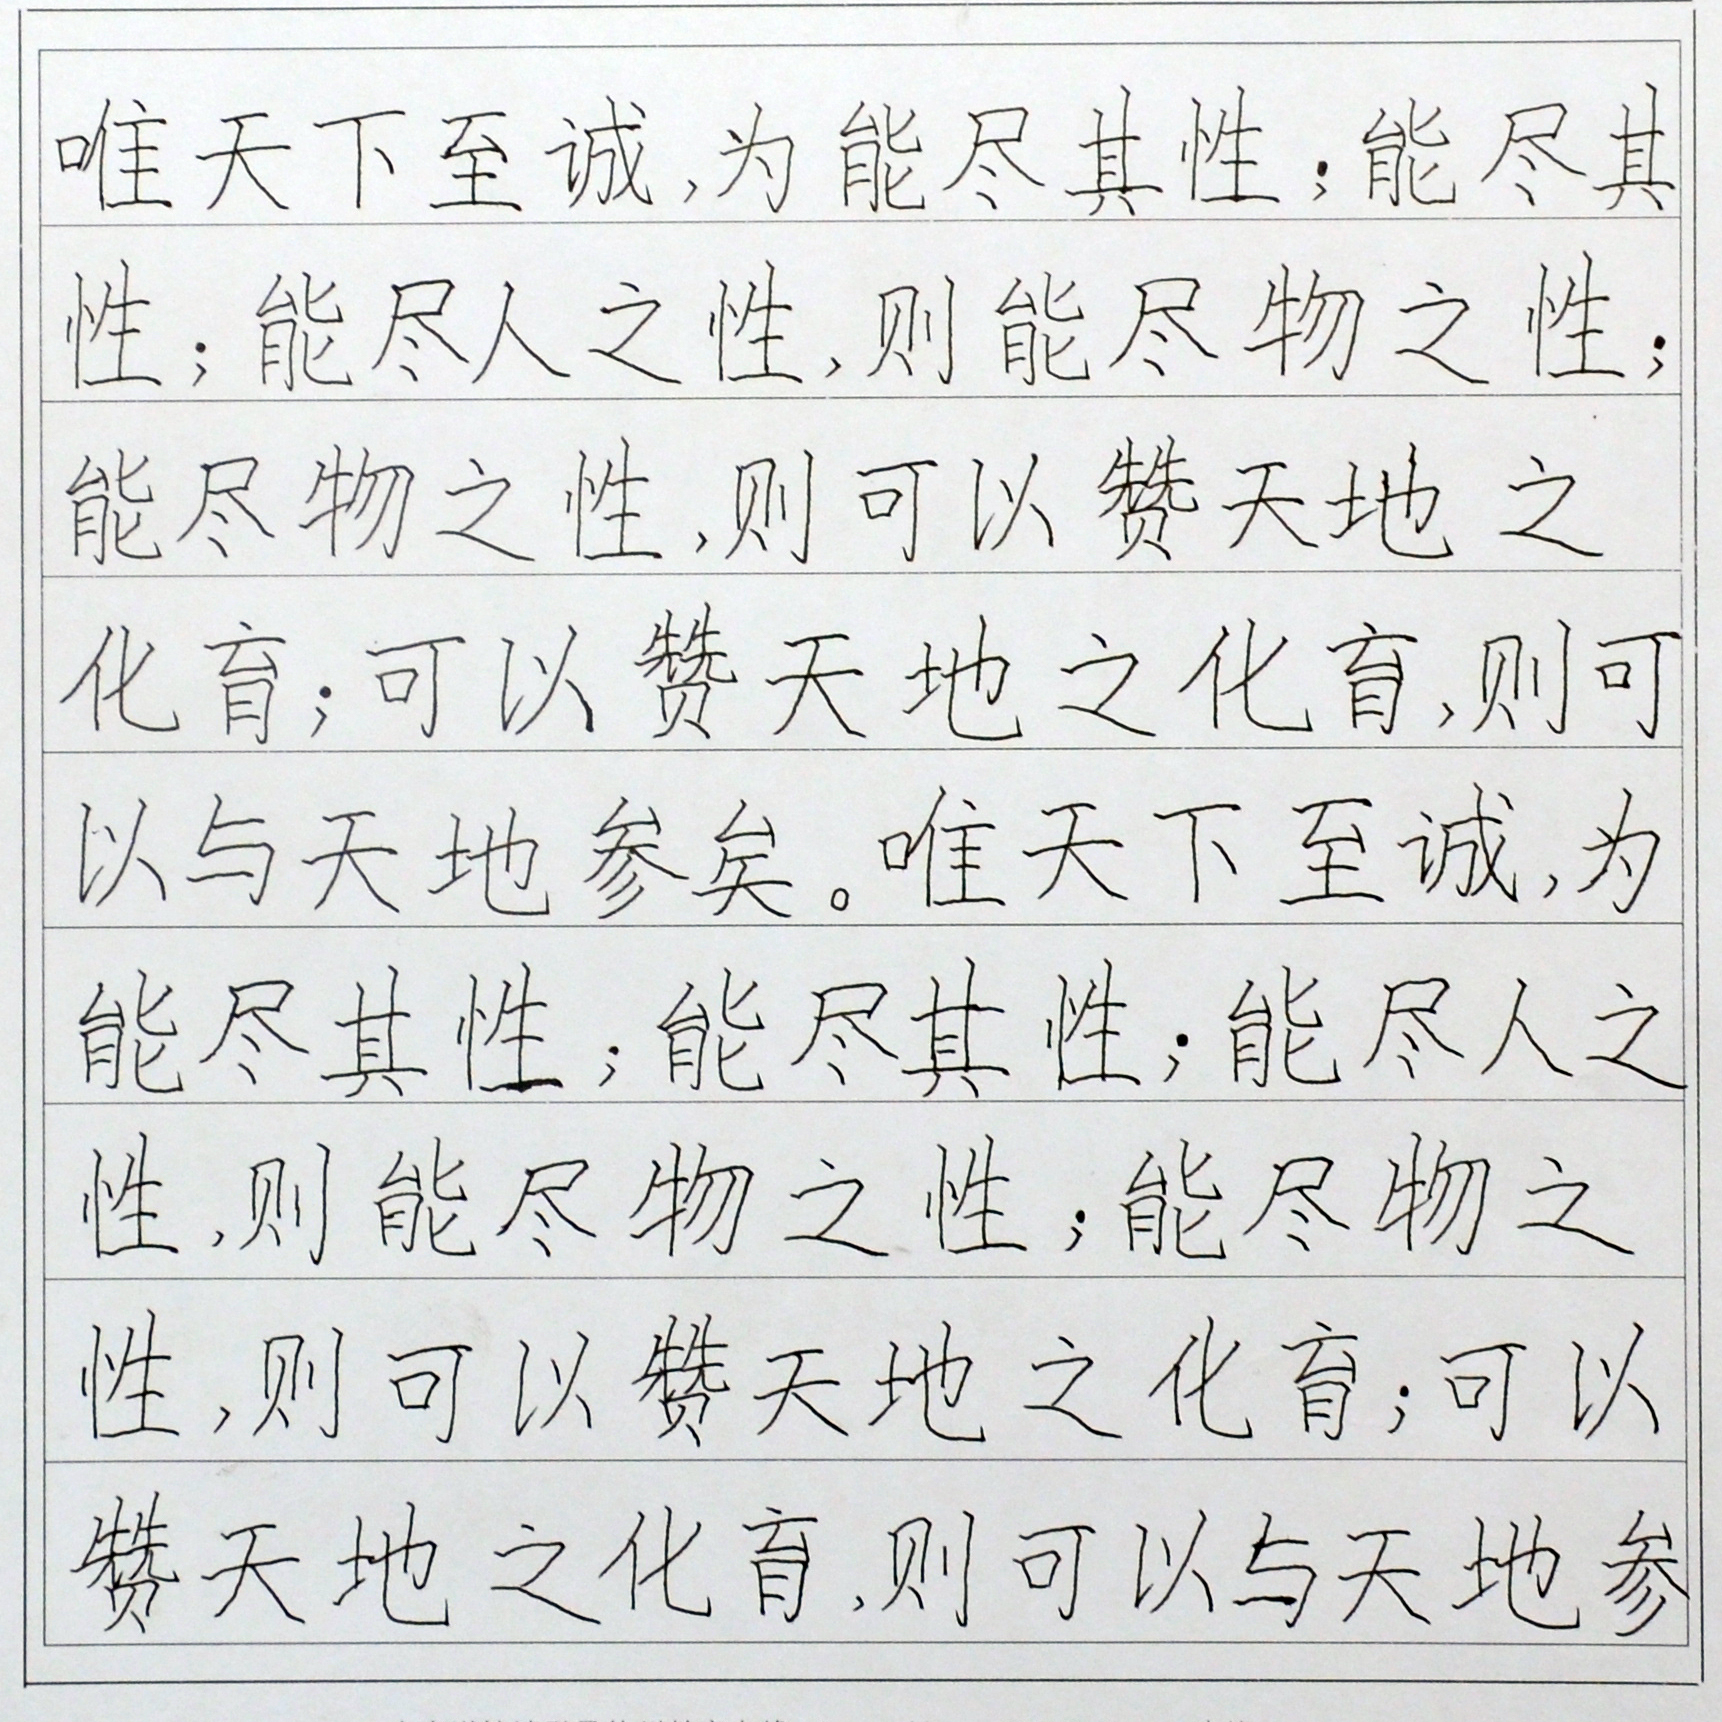 唯天下至诚,为能尽其性;能尽其
性;能尽人之性,则能尽物之性;
能尽物之性,则可以赞天地之
化育;可以赞天地之化育,则可
以与天地参矣。唯天下至诚,为
能尽其性;能尽其性;能尽人之
性,则能尽物之性;能尽物之
性,则可以赞天地之化育;可以
赞天地之化育,则可以与天地参